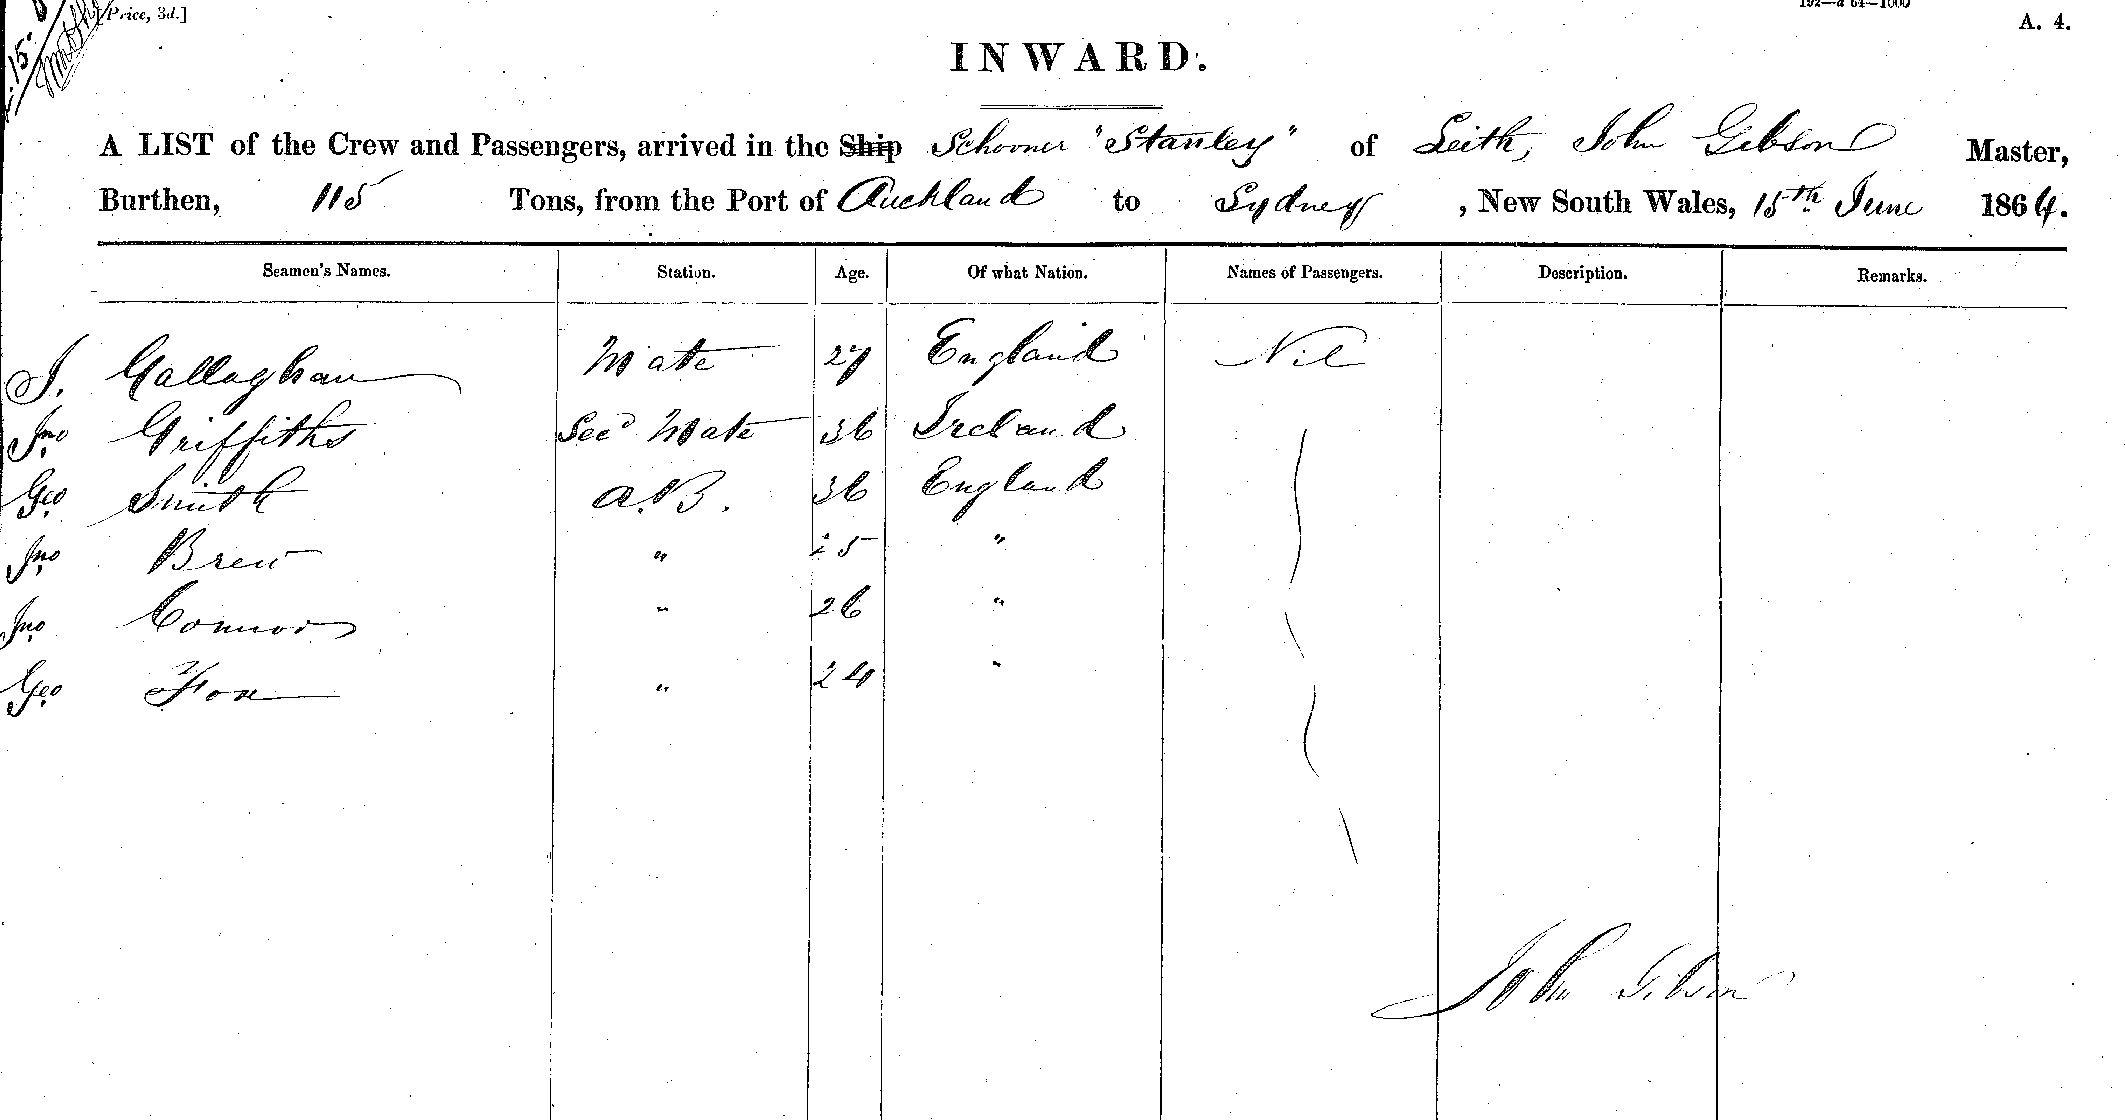 [Price, 3d.]
A. 4.
INWARD.
A LIST of the Crew and Passengers, arrived in the Ship Schooner "Stanley" of Leith, John Gibson Master,
Burthen, 115 Tons, from the Port of Auckland to Sydney, New South Wales, 15th June 1864.
Seamen's Names. Station. Age. Of what Nation. Names of Passengers. Description. Remarks.
J. Gallaghan Mate 27 England Nil
Jno Griffiths Secd Mate 36 Ireland
Geo Smith A.B. 36 England
Jno Brew " 25 "
Jno Connor " 26 "
Geo Fox " 24 "
John Gibson